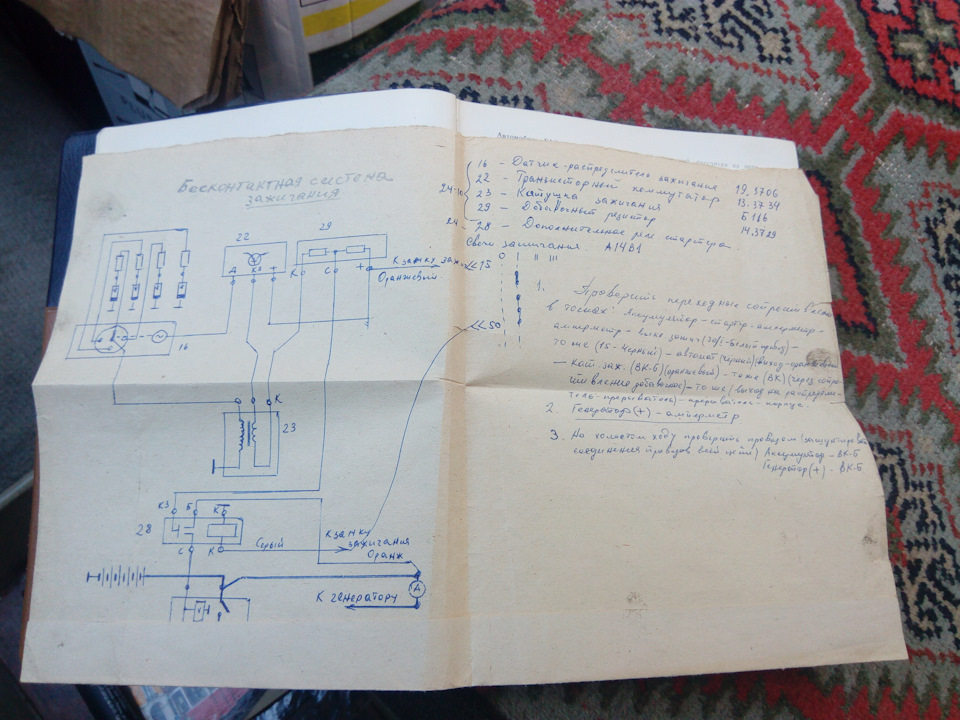 Бесконтактная система
зажигания
22
29
Д
КЗ
+
К
С
+
К замку заж.
Оранжевый
16
К
23
КЗ
Б
К
28
С
К
Серый
К замку
зажигания
Оранж
А
К генератору
16 - Датчик-распределитель зажигания 19.3706
22 - Транзисторный коммутатор 13.3734
23 - Катушка зажигания Б116
29 - Добавочный резистор 14.3729
28 - Дополнительное реле стартера
Свечи зажигания: А14В1
15
50
1. Проверить переходные сопротив
в точках: Аккумулятор - стартер - амперметр -
амперметр - выкл зажиг
то же (15-Черный) - автомат (черный) выход-оранжевый
- кат. заж. (ВК-Б) (оранжевый) - то же (ВК) (через сопро
тивление добавочное) - то же (выход на распреде
тель-прерыватель) - прерыватель - корпус.
2. Генератор (+) - амперметр
3. На холостом ходу проверить проводом
соединения проводов всей цепи) Аккумулятор - ВК-Б
Генератор (+) - ВК-Б